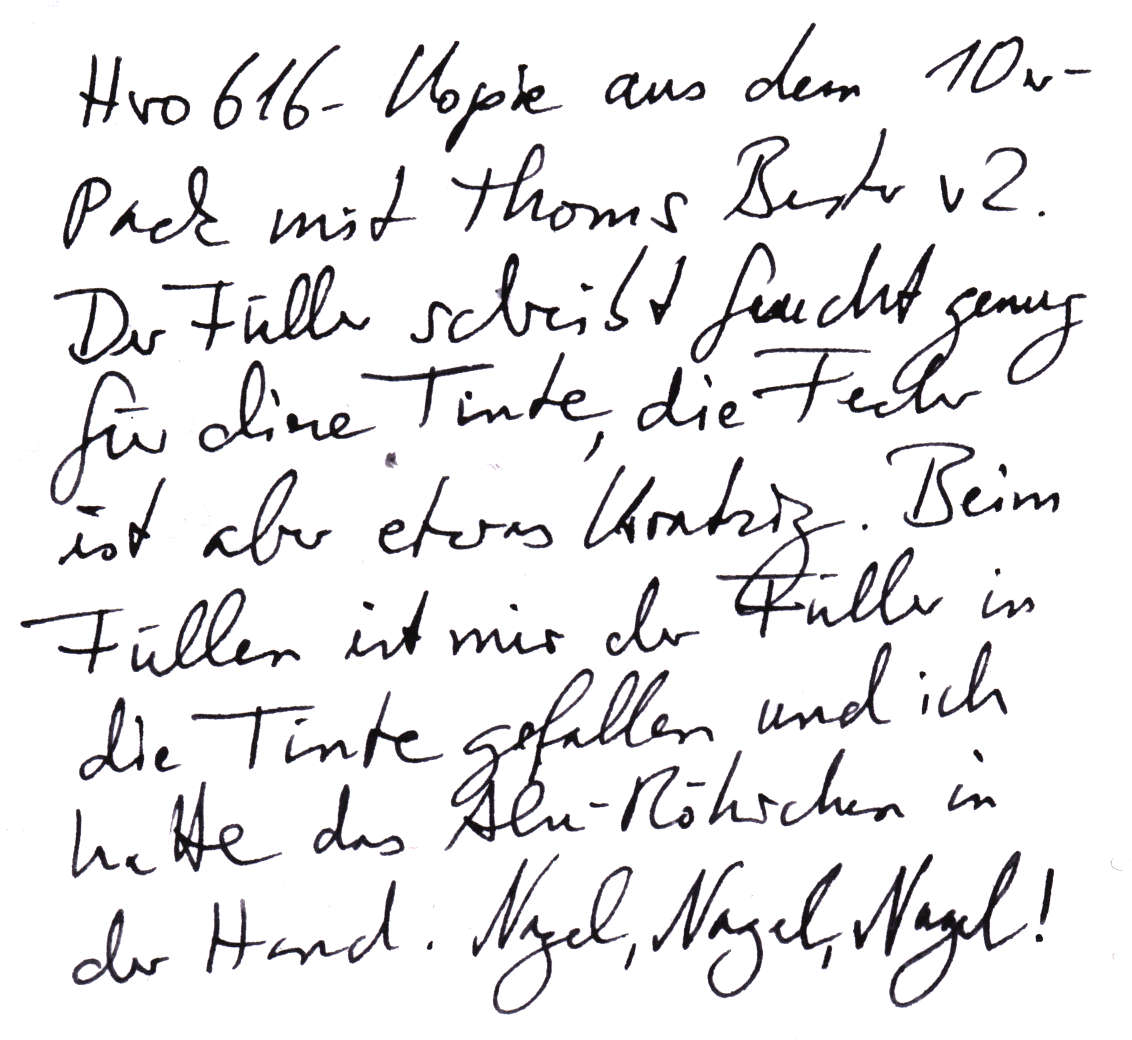 Hro 616- Kopie aus dem 10er-
Pack mit Thoms Bester v2.
Der Füller schreibt feucht genug
für diese Tinte, die Feder
ist aber etwas kratzig. Beim
Füllen ist mir der Füller in
die Tinte gefallen und ich
hatte das Alu-Röhrchen in
der Hand. Nagel, Nagel, Nagel!